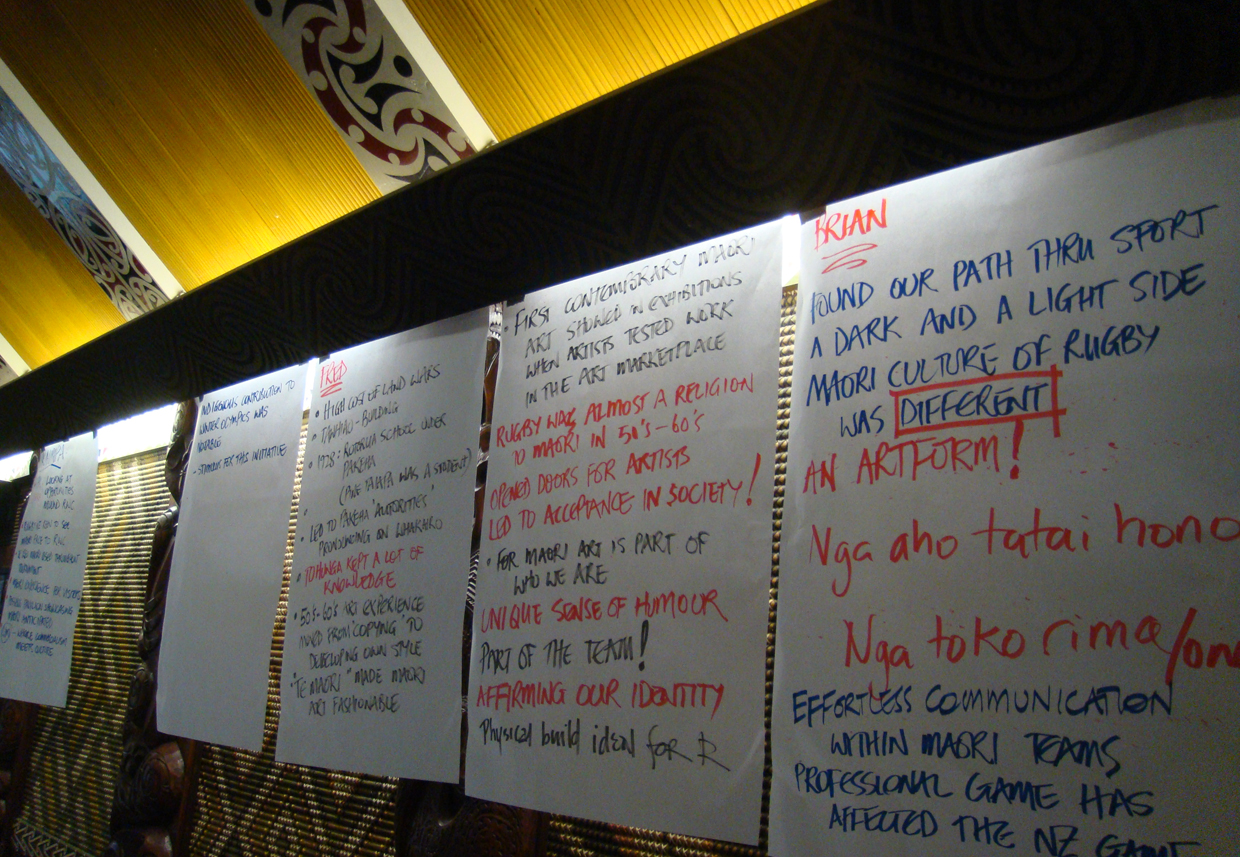 LOOKING AT
OPPORTUNITIES
AROUND RWC
INDIGENOUS CONTRIBUTION TO
WINTER OLYMPICS WAS
NOTABLE
- STIMULUS FOR THIS INITIATIVE
FRED
• HIGH COST OF LAND WARS
• TAWHIAO - BUILDING
• 1928: ROTORUA SCHOOL UNDER
PAKEHA
(PINE TAIAPA WAS A STUDENT)
• LED TO PAKEHA 'AUTHORITIES'
PRONOUNCING ON WHAKAIRO
• TOHUNGA KEPT A LOT OF
KNOWLEDGE
• 50'S-60'S ART EXPERIENCE
MOVED FROM 'COPYING' TO
DEVELOPING OWN STYLE
• 'TE MAORI' MADE MAORI
ART FASHIONABLE
• FIRST CONTEMPORARY MAORI
ART SHOWED IN EXHIBITIONS
WHEN ARTISTS TESTED WORK
IN THE ART MARKETPLACE
RUGBY WAS ALMOST A RELIGION
TO MAORI IN 50'S-60'S
OPENED DOORS FOR ARTISTS
LED TO ACCEPTANCE IN SOCIETY!
• FOR MAORI ART IS PART OF
WHO WE ARE
UNIQUE SENSE OF HUMOUR
PART OF THE TEAM!
AFFIRMING OUR IDENTITY
Physical build ideal for R
BRIAN
FOUND OUR PATH THRU SPORT
A DARK AND A LIGHT SIDE
MAORI CULTURE OF RUGBY
WAS DIFFERENT
AN ARTFORM!
Nga aho tatai hono
Nga toko rima/one
EFFORTLESS COMMUNICATION
WITHIN MAORI TEAMS
PROFESSIONAL GAME HAS
AFFECTED THE NZ GAME